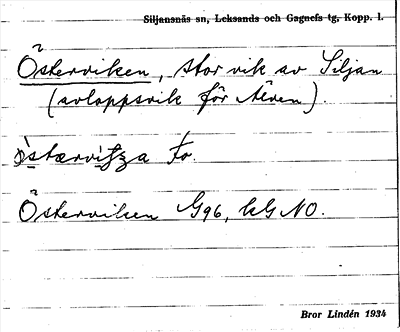 Siljansnäs sn, Leksands och Gagnefs tg, Kopp. l.
Österviken, stor vik av Siljan
(avloppsvik för älven).
Fo.
Österviken G96, kG NO.
Bror Lindén 1934